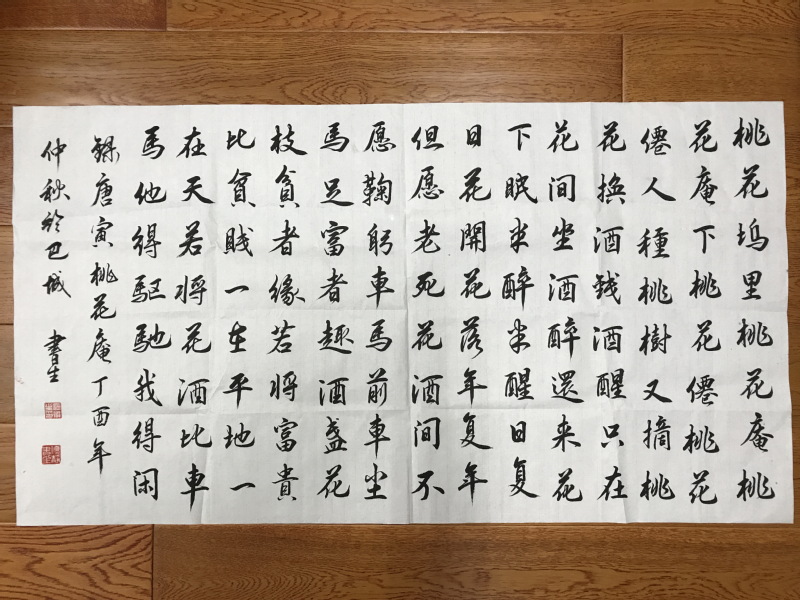 桃花坞里桃花庵桃
花庵下桃花僊桃花
僊人種桃樹又摘桃
花換酒钱酒醒只在
花间坐酒醉還来花
下眠半醉半醒日复
日花開花落年复年
但愿老死花酒间不
愿鞠躬車馬前車尘
馬足富者趣酒盏花
枝貧者缘若将富貴
比貧賤一在平地一
在天若将花酒比車
馬他得駆馳我得闲
録唐寅桃花庵丁酉年
仲秋於巴城 書生